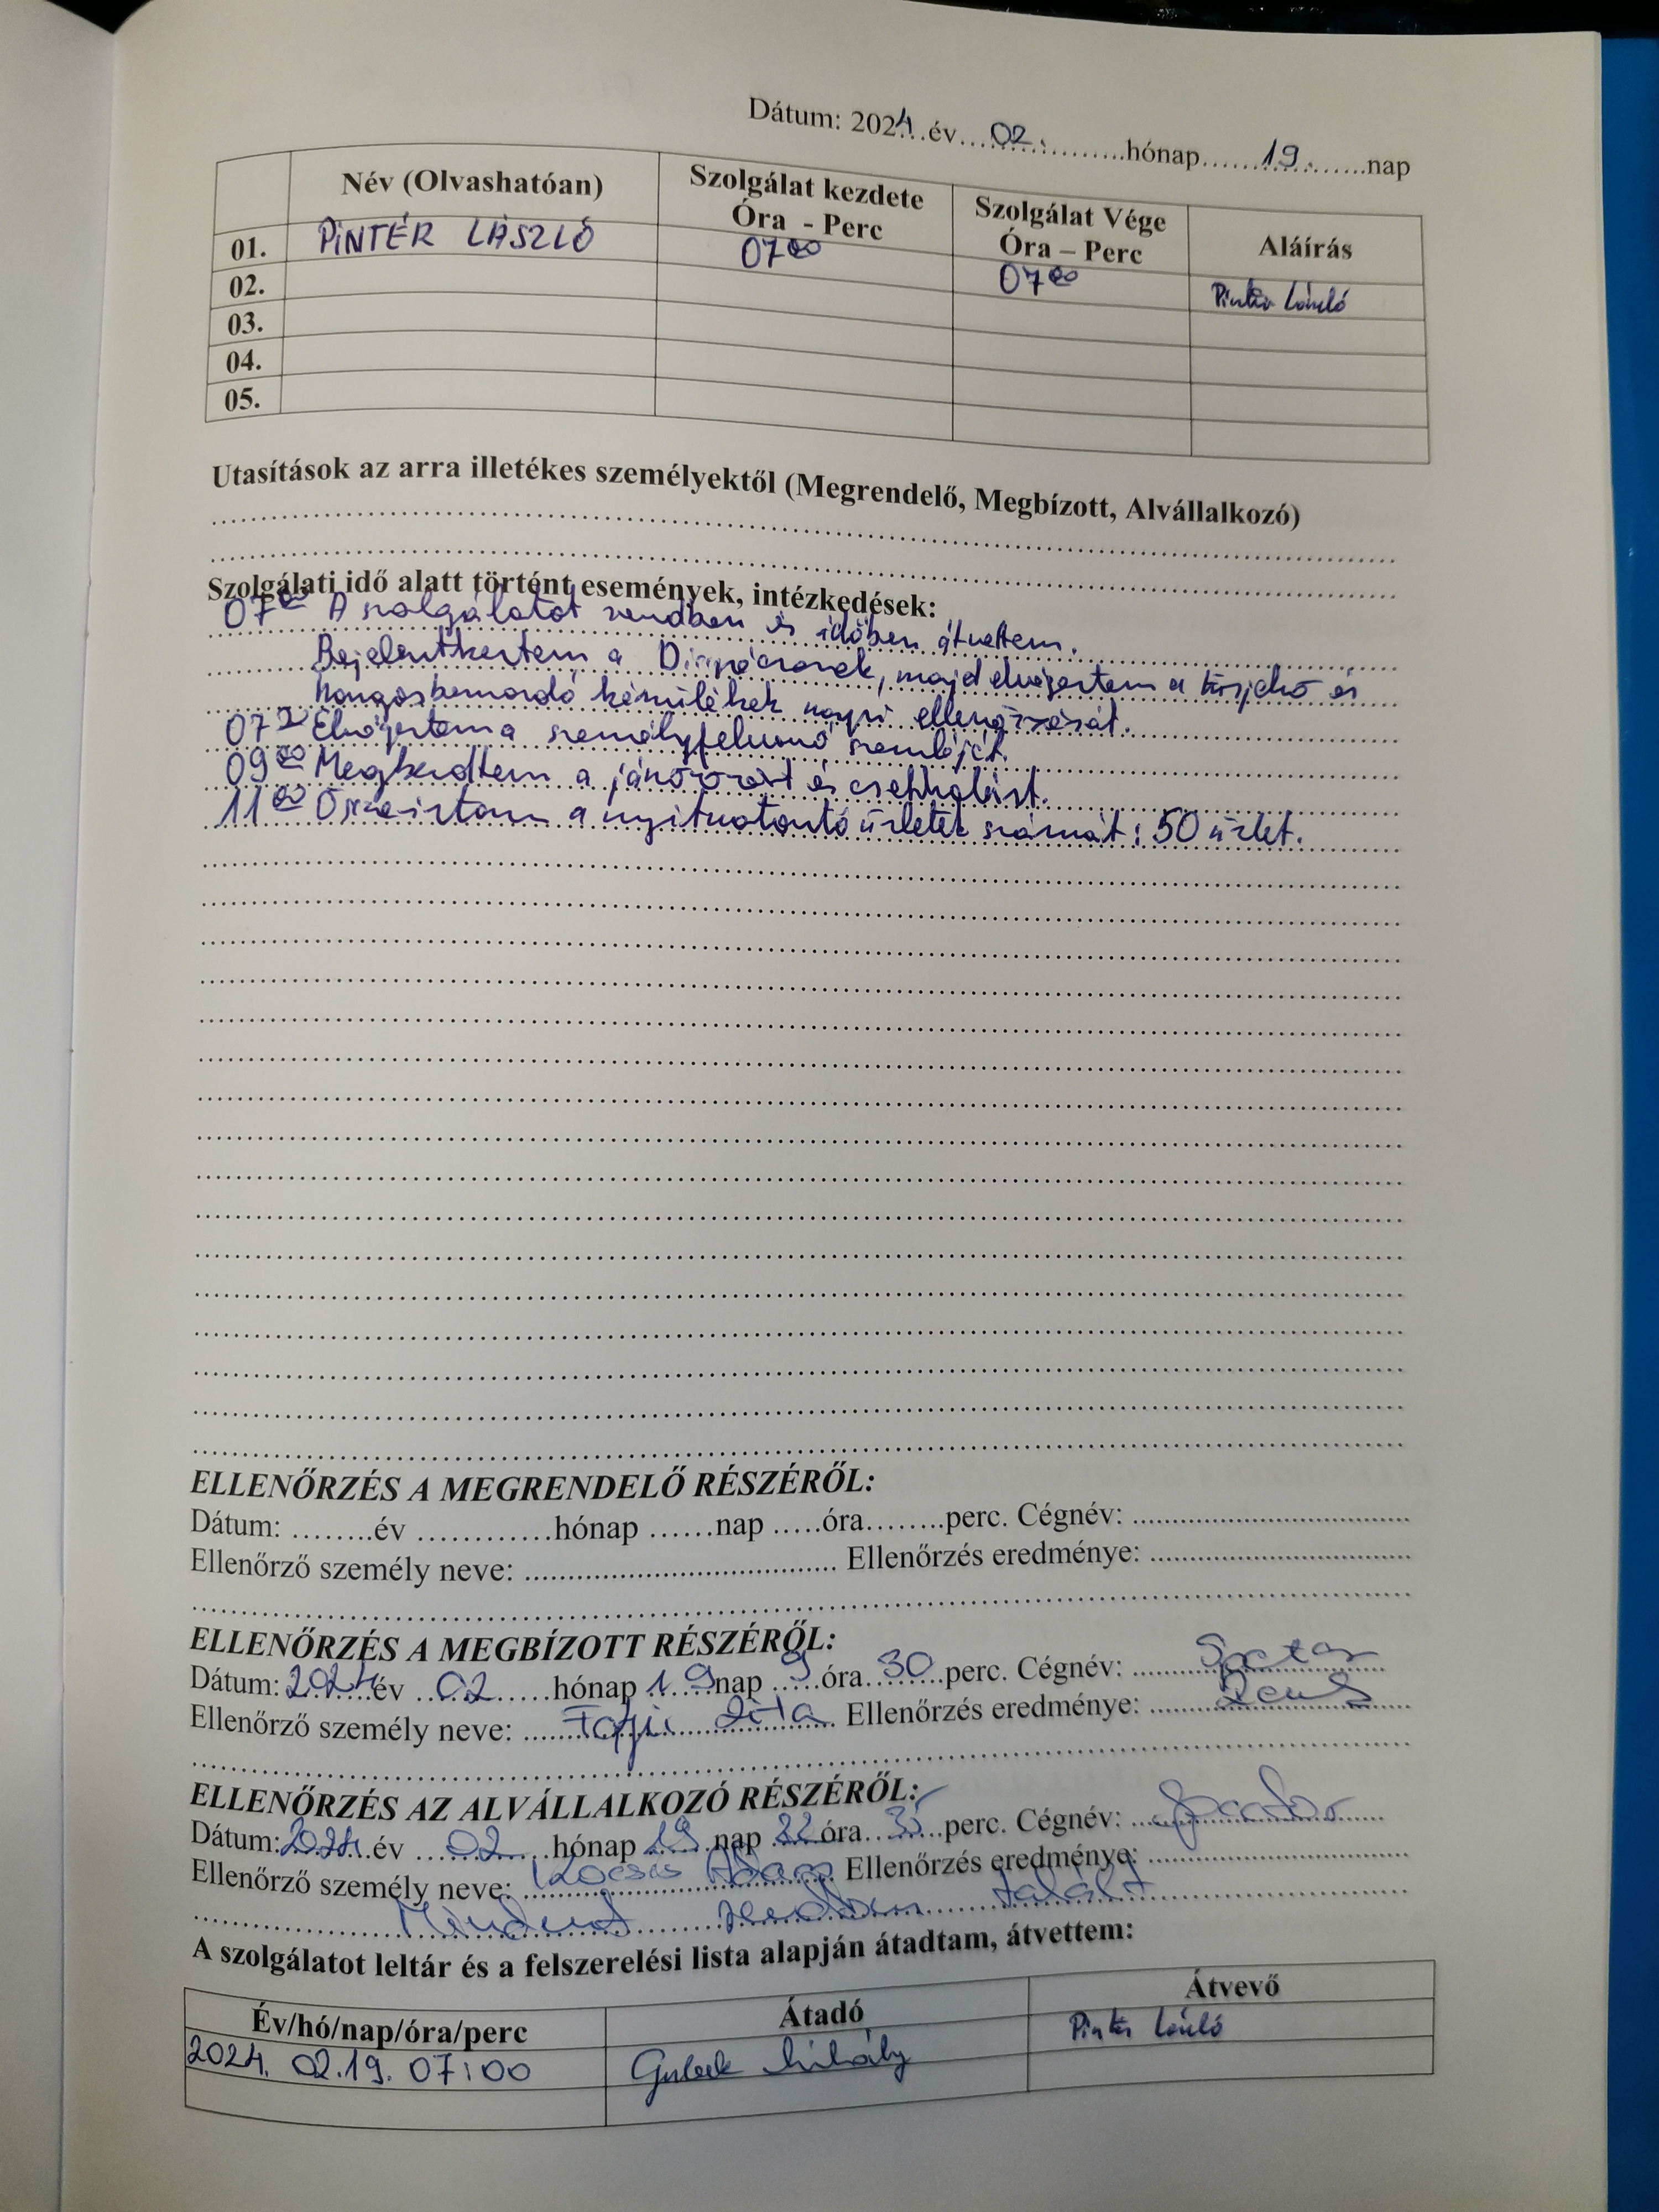 Dátum: 2024 év 02. hónap 19. nap
Név (Olvashatóan) Szolgálat kezdete Óra - Perc Szolgálat Vége Óra – Perc Aláírás
01. PINTÉR LÁSZLÓ 07⁰⁰ 07⁰⁰ Pintér László
02.
03.
04.
05.
Utasítások az arra illetékes személyektől (Megrendelő, Megbízott, Alvállalkozó)
Szolgálati idő alatt történt események, intézkedések:
07⁰⁰ A szolgálatot rendben és időben átvettem.
Bejelentkeztem a majd elvégeztem a tűzjelző és
hangosbemondó készülékek napi ellenőrzését.
07 Elvégeztem a személyfelvonó szemléjét.
09⁰⁰ Megkezdtem a járőrözést és
11⁰⁰ Összeírtam a nyitvatartó üzletek számát: 50 üzlet.
ELLENŐRZÉS A MEGRENDELŐ RÉSZÉRŐL:
Dátum: ........év ............hónap ......nap .....óra........perc. Cégnév: ....................
Ellenőrző személy neve: .................... Ellenőrzés eredménye: ....................
ELLENŐRZÉS A MEGBÍZOTT RÉSZÉRŐL:
Dátum: 2024 év 02 hónap 19 nap 9 óra 30 perc. Cégnév:
Ellenőrző személy neve: Ellenőrzés eredménye:
ELLENŐRZÉS AZ ALVÁLLALKOZÓ RÉSZÉRŐL:
Dátum: 2024 év 02 hónap 19 nap 22 óra 35 perc. Cégnév:
Ellenőrző személy neve: Kocsis Ádám Ellenőrzés eredménye:
Mindent rendben talált
A szolgálatot leltár és a felszerelési lista alapján átadtam, átvettem:
Év/hó/nap/óra/perc Átadó Átvevő
2024. 02.19. 07:00 Mihály Pintér László